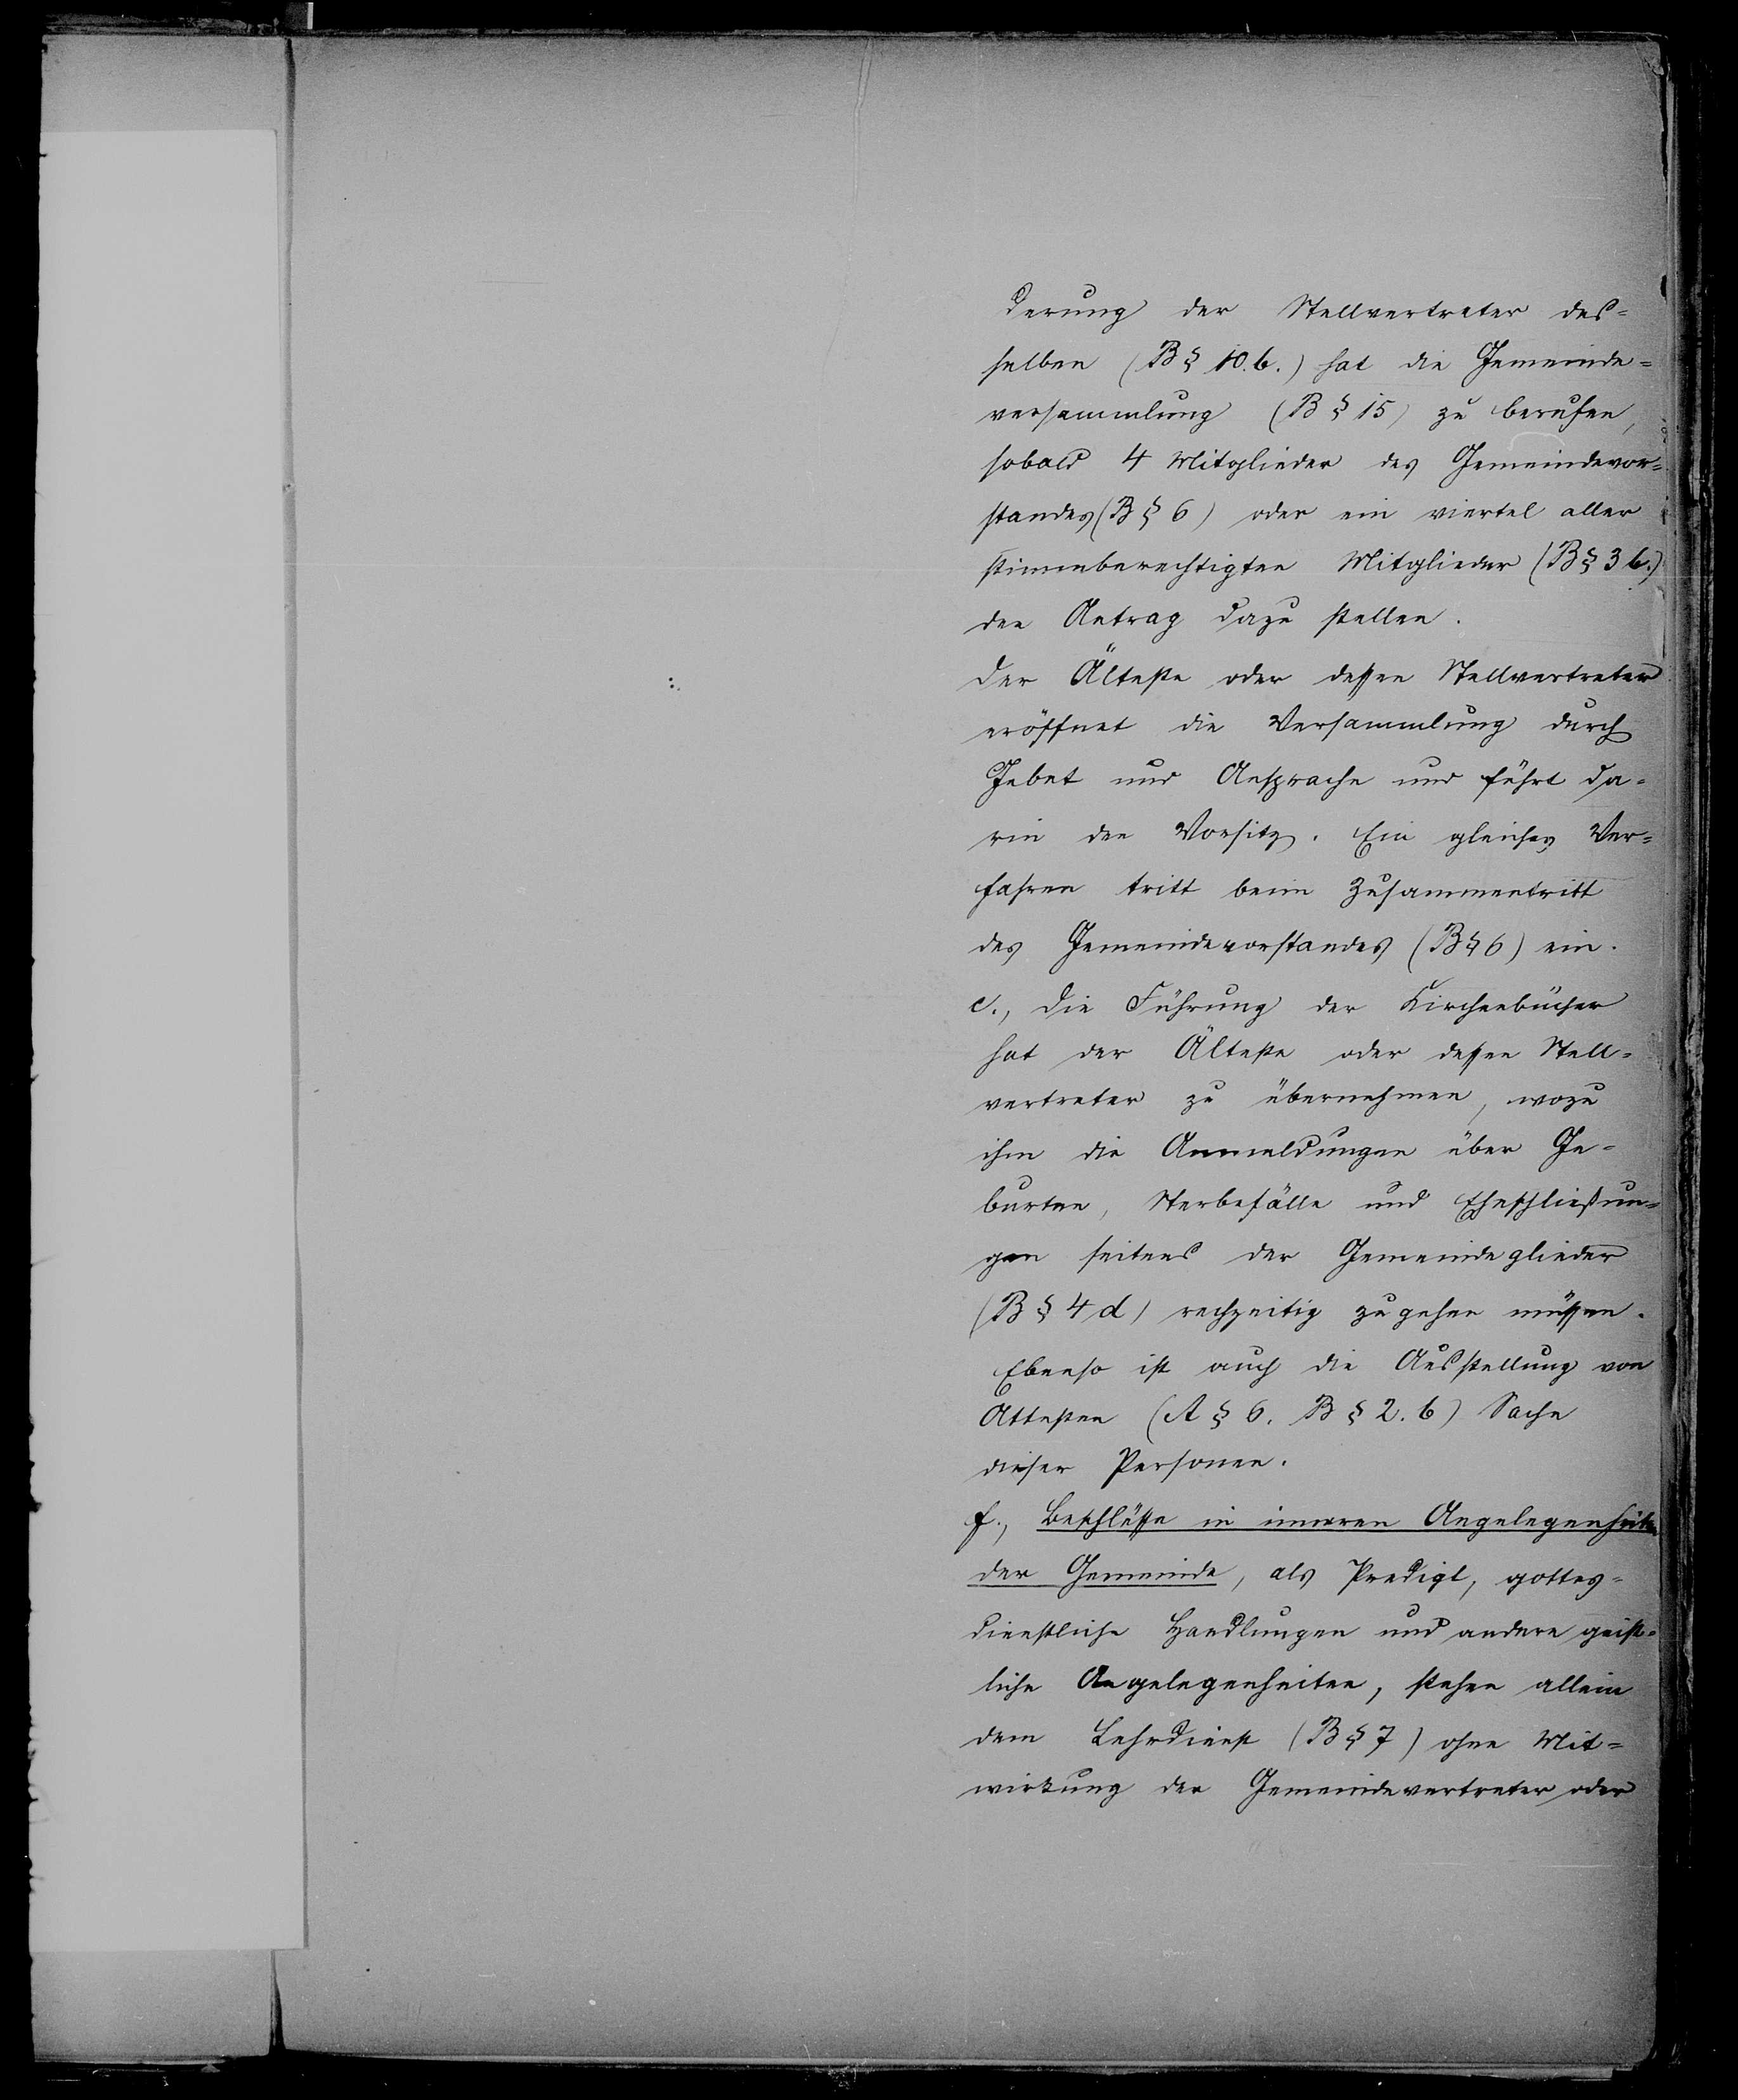 derung der Stellvertreter des=
selben (B § 10. b.) hat die Gemeinde=
versammlung (B § 15) zu berufen,
sobald 4 Mitglieder des Gemeindevor=
standes (B § 6) oder ein viertel aller
stimmberechtigten Mitglieder (B § 3 b.)
den Antrag dazu stellen.
Der Älteste oder dessen Stellvertreter
eröffnet die Versammlung durch
Gebet und Ansprache und führt da=
rin den Vorsitz. Ein gleiches Ver=
fahren tritt beim Zusammentritt
des Gemeindevorstandes (B § 6) ein.
e., Die Führung der Kirchenbücher
hat der Älteste oder dessen Stell=
vertreter zu übernehmen, wozu
ihm die Anmeldungen über Ge=
burten, Sterbefälle und Eheschließun=
gen seitens der Gemeindeglieder
(B § 4 d) rechzeitig zugehen müssen.
Ebenso ist auch die Ausstellung von
Attesten (A § 6. B § 2. b) Sache
dieser Personen.
f., Beschlüsse in inneren Angelegenheiten
der Gemeinde, als Predigt, gottes=
dienstliche Handlungen und andere geist=
liche Angelegenheiten, stehen allein
dem Lehrdienst (B § 7) ohne Mit=
wirkung der Gemeindevertreter oder